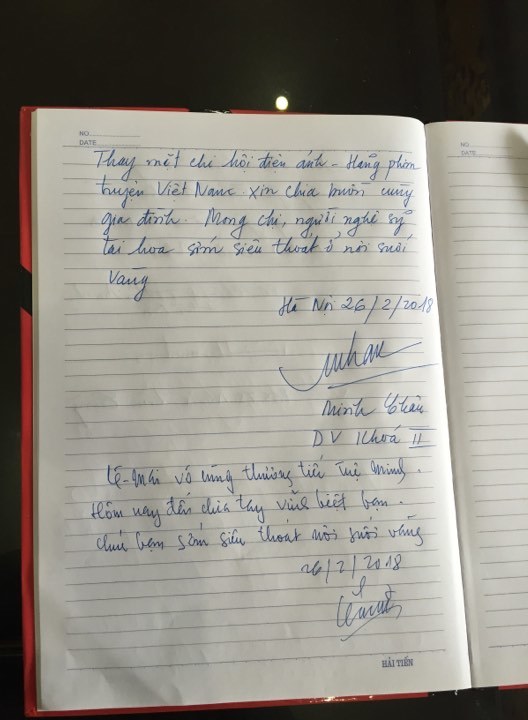 NO
DATE
Thay mặt chi hội điện ảnh - Hãng phim
truyện Việt Nam xin chia buồn cùng
gia đình. Mong chị, người nghệ sỹ
tài hoa sớm siêu thoát ở nơi suối
vàng
Hà Nội 26/2/2018
Minh Châu
DV Khoá II
Lê-Mai vô cùng thương tiếc Tuệ Minh.
Hôm nay đến chia tay vĩnh biệt bạn.
Chúc bạn sớm siêu thoát nơi suối vàng
26/2/2018
HẢI TIẾN
NO
DATE